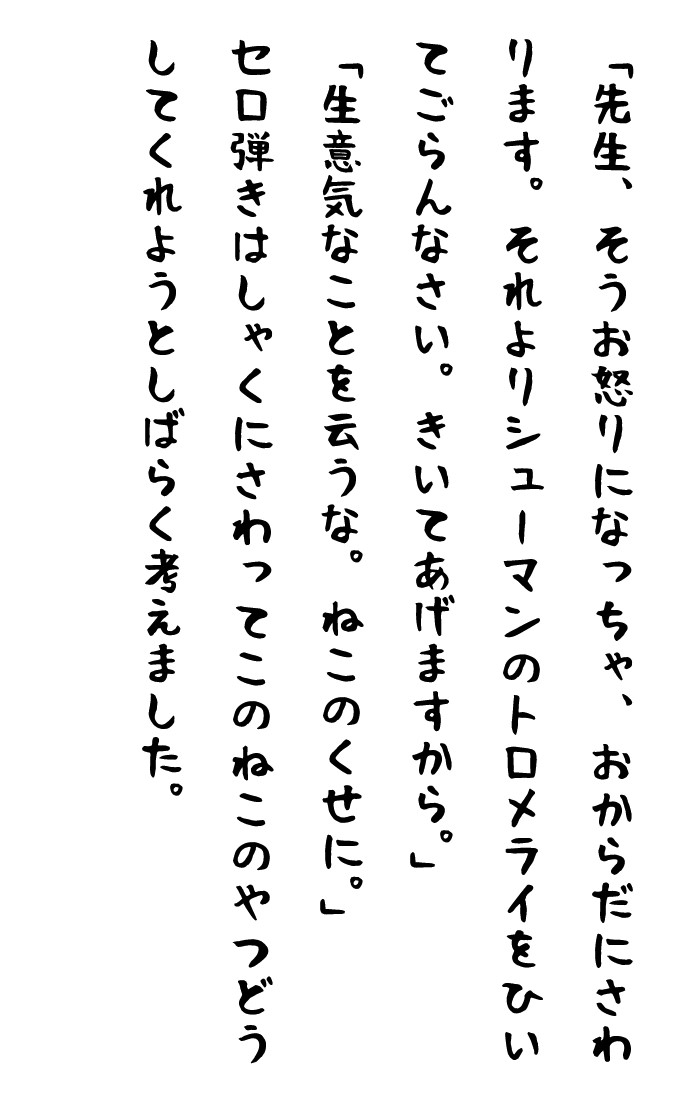 「先生、そうお怒りになっちゃ、おからだにさわ
ります。それよりシューマンのトロメライをひい
てごらんなさい。きいてあげますから。」
「生意気なことを云うな。ねこのくせに。」
セロ弾きはしゃくにさわってこのねこのやつどう
してくれようとしばらく考えました。